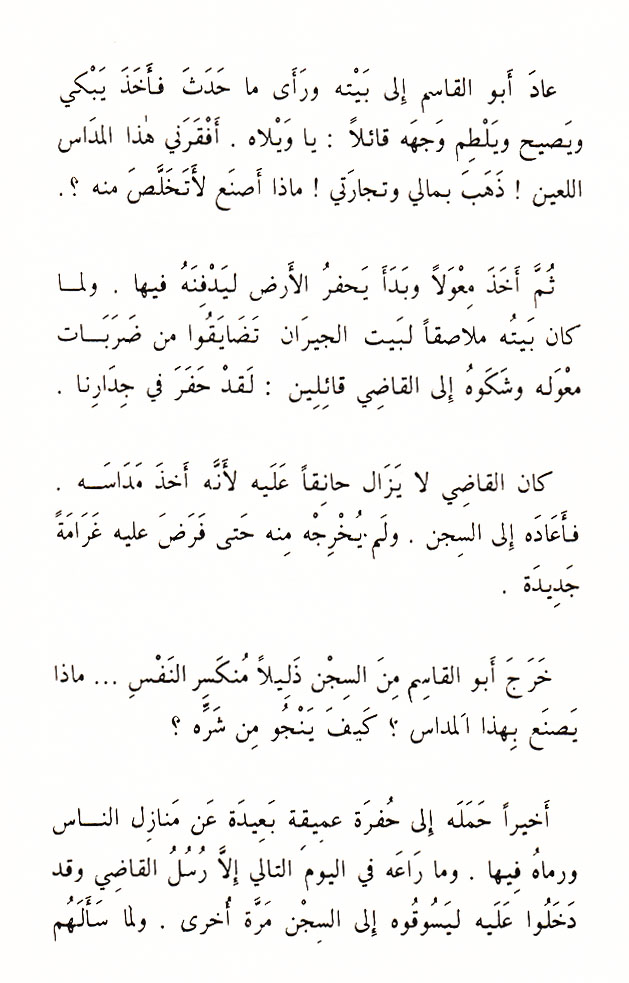 عادَ أَبو القاسم إلى بَيْته ورَأَى ما حَدَثَ فأَخَذَ يَبْكي
ويَصيح ويَلْطِم وَجهَه قائلاً : يا وَيْلاه . أَفْقَرَني هٰذا المدَاس
اللعين ! ذَهَبَ بمالي وتجارَتي ! ماذا أَصنَع لأَتَخَلَّصَ منه ؟.
ثُمَّ أَخَذَ مِعْوَلاً وبَدَأَ يَحفرُ الأَرض ليَدْفِنَهُ فيها . ولمـا
كان بَيتُه ملاصقاً لبَيت الجيرَان تَضَايَقُوا من ضَرَبَـات
معْوَله وشَكَوهُ إلى القاضِي قائِلِين : لَقدْ حَفَرَ في جِدَارِنا .
كان القاضِي لا يَزَال حانِقاً عَلَيه لأَنَّه أَخذَ مَدَاسَـه .
فأَعَادَه إلى السِجن . ولَم يُخْرِجْه مِنه حَتى فَرَضَ عليه غَرَامَةً
جَدِيدَة .
خَرَجَ أَبو القاسِم مِنَ السِجْن ذَلِيلاً مُنكَسِر النَفْسِ ... ماذا
يَصنَع بِهذا المداس ؟ كَيفَ يَنْجُو مِن شَرَّه ؟
أَخيراً حَمَلَه إلى حُفرَة عمِيقة بَعِيدَة عَن مَنازِل النـاس
ورماهُ فِيها . وما رَاعَه في اليومِ التالي إلاَّ رُسُلُ القاضِي وقد
دَخَلُوا عَلَيه ليَسُوقُوه إلى السِجْن مَرَّة أُخرى . ولما سَأَلَهُم